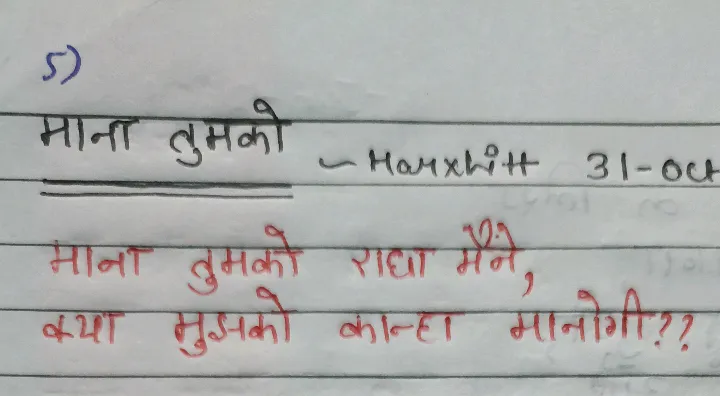 5)
माना तुमको
~ Harxhitt 31-oct
माना तुमको राधा मैंने,
क्या मुझको कान्हा मानोगी??